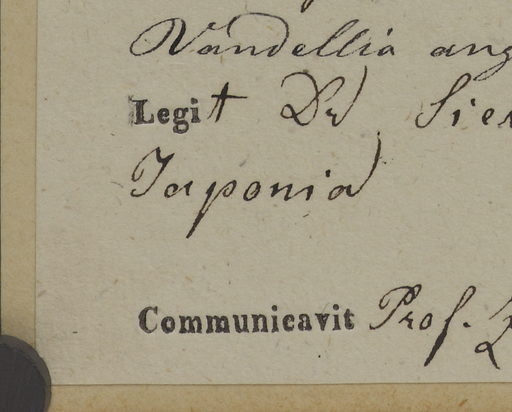 Vandellia ang
Legit Dr Sie
Japonia
Communicavit Prof.